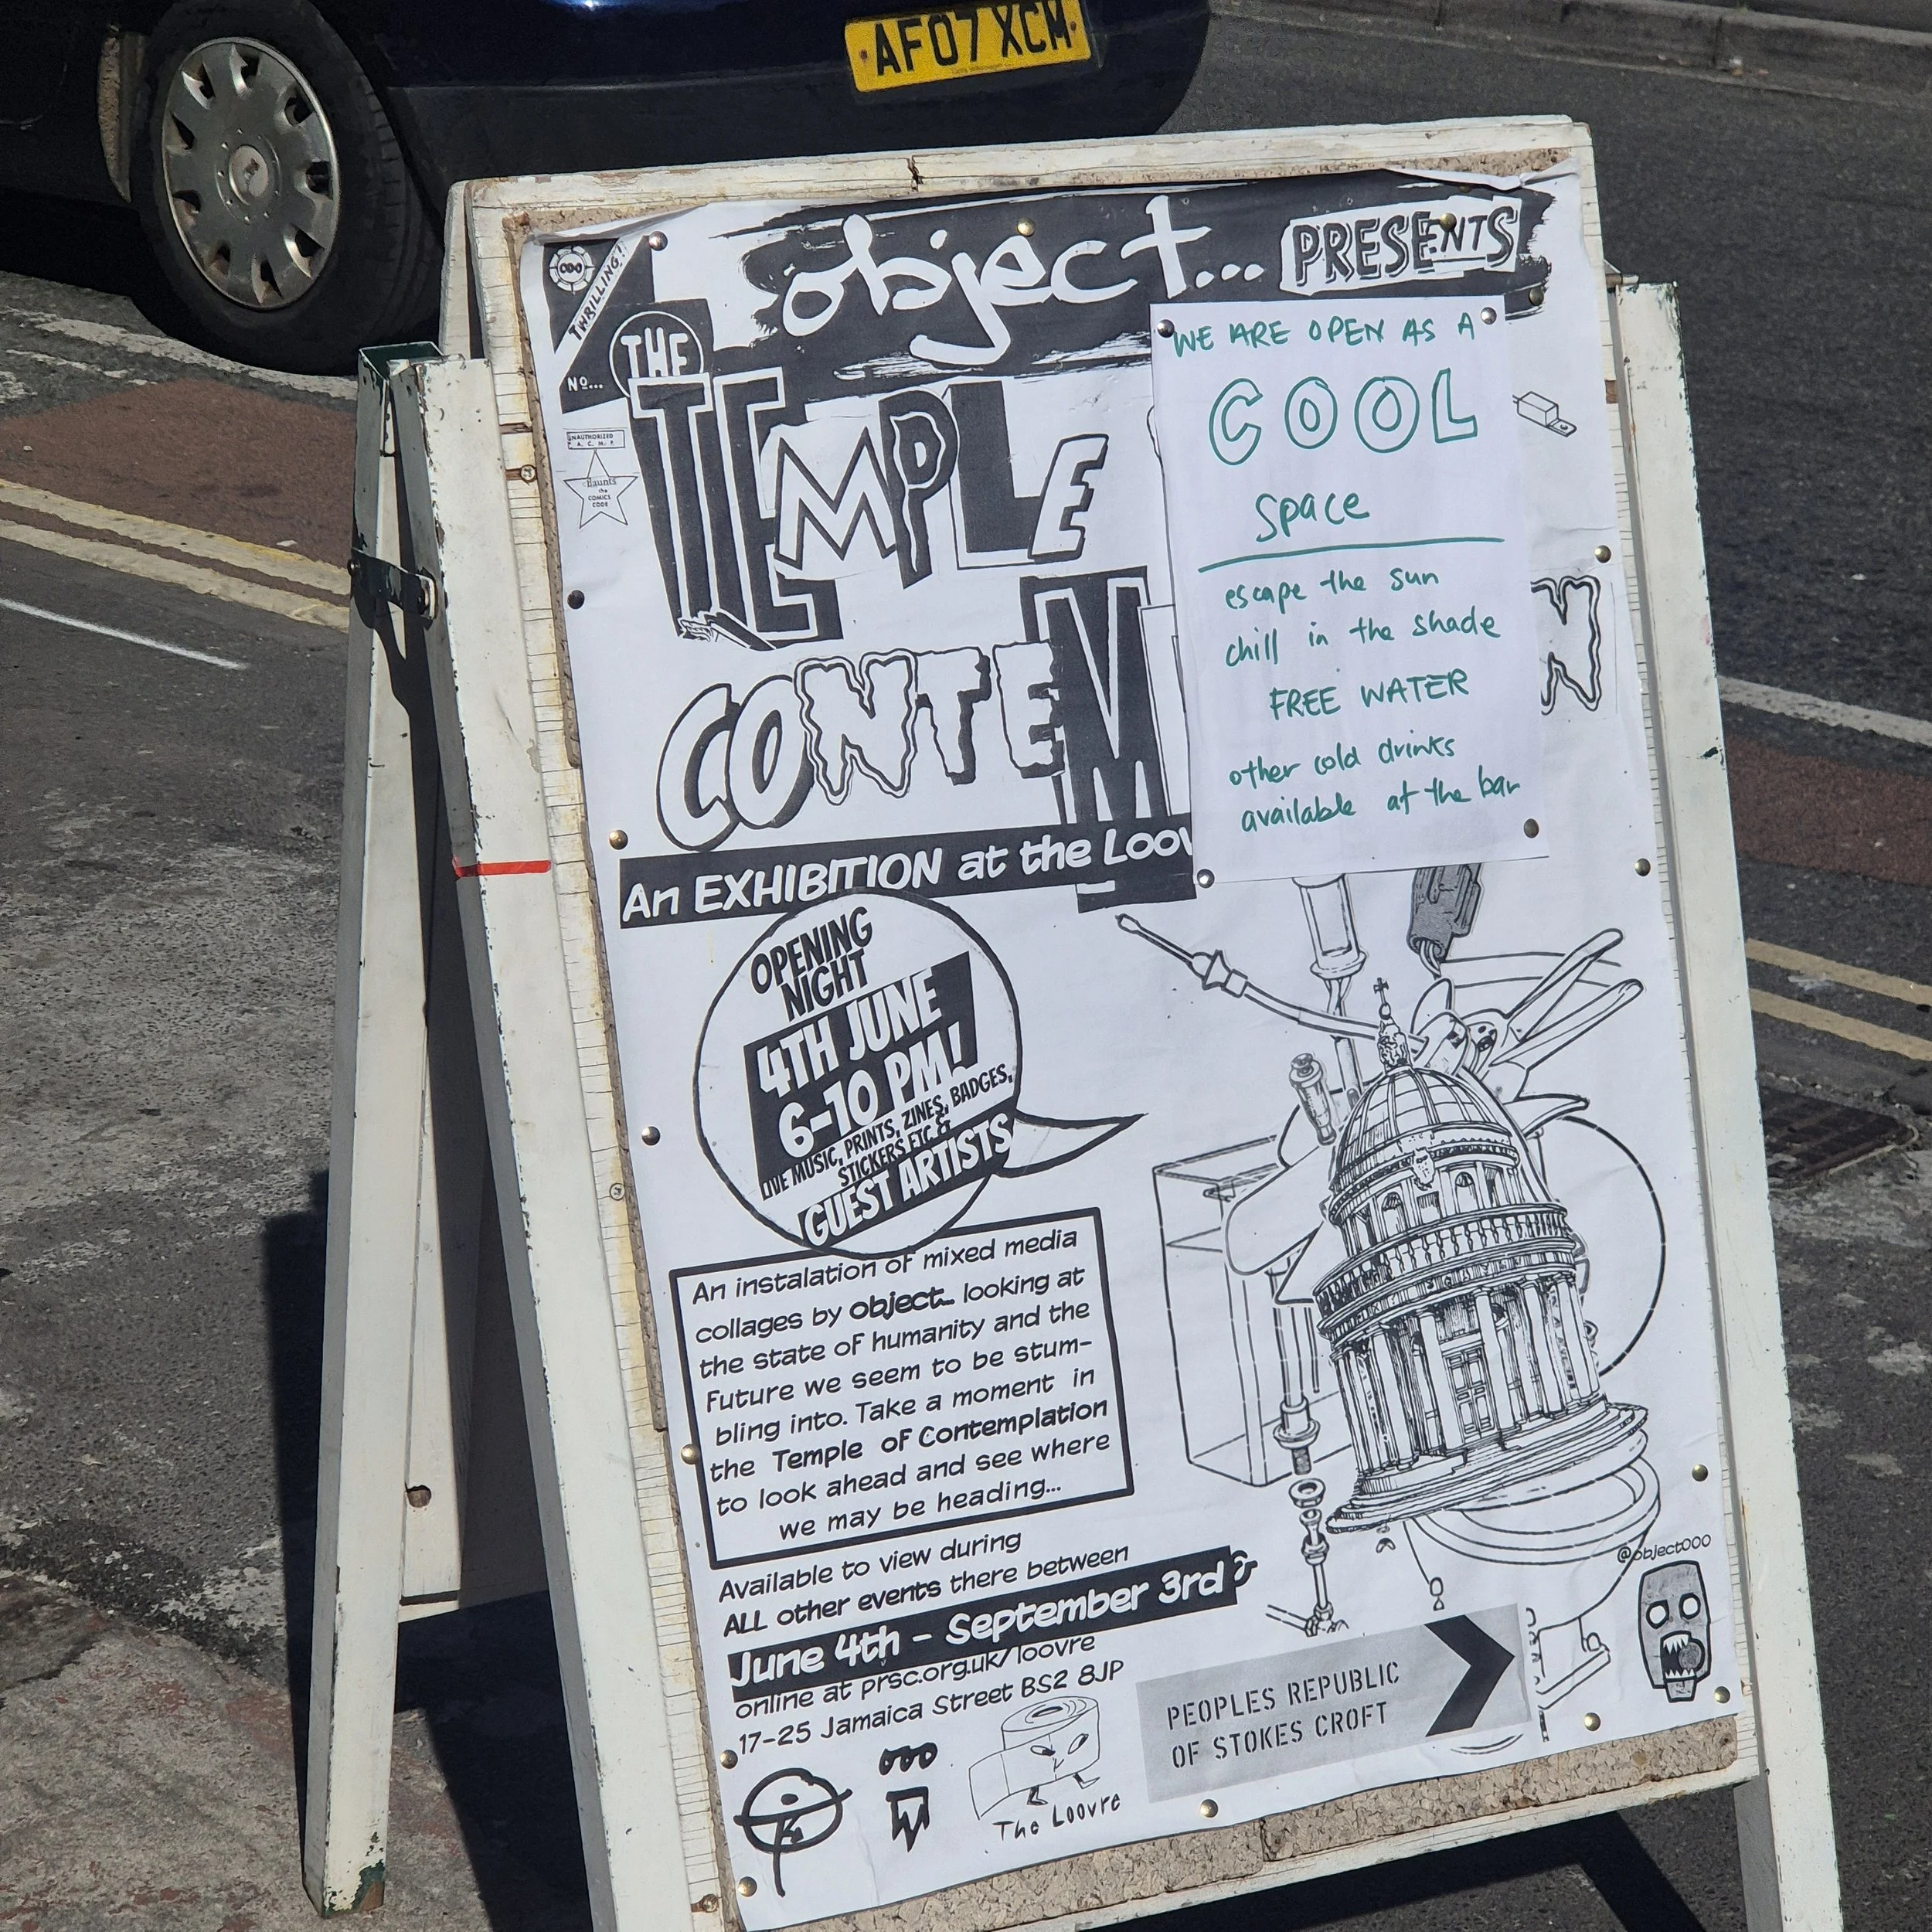 AF07 XCM
object... PRESENTS
THRILLING!
No...
THE
TEMPLE
UNAUTHORIZED
A. C. M. P.
flaunts
the
COMICS
CODE
CONTEM
N
An EXHIBITION at the Loov
WE ARE OPEN AS A
COOL
space
escape the sun
chill in the shade
FREE WATER
other cold drinks
available at the bar
OPENING
NIGHT
4TH JUNE
6-10 PM!
LIVE MUSIC, PRINTS, ZINES, BADGES,
STICKERS ETC &
GUEST ARTISTS
An instalation of mixed media
collages by object... looking at
the state of humanity and the
future we seem to be stum-
bling into. Take a moment in
the Temple of Contemplation
to look ahead and see where
we may be heading...
Available to view during
ALL other events there between
June 4th - September 3rd &
online at prsc.org.uk/loovre
17-25 Jamaica Street BS2 8JP
@object000
PEOPLES REPUBLIC
OF STOKES CROFT
The Loovre